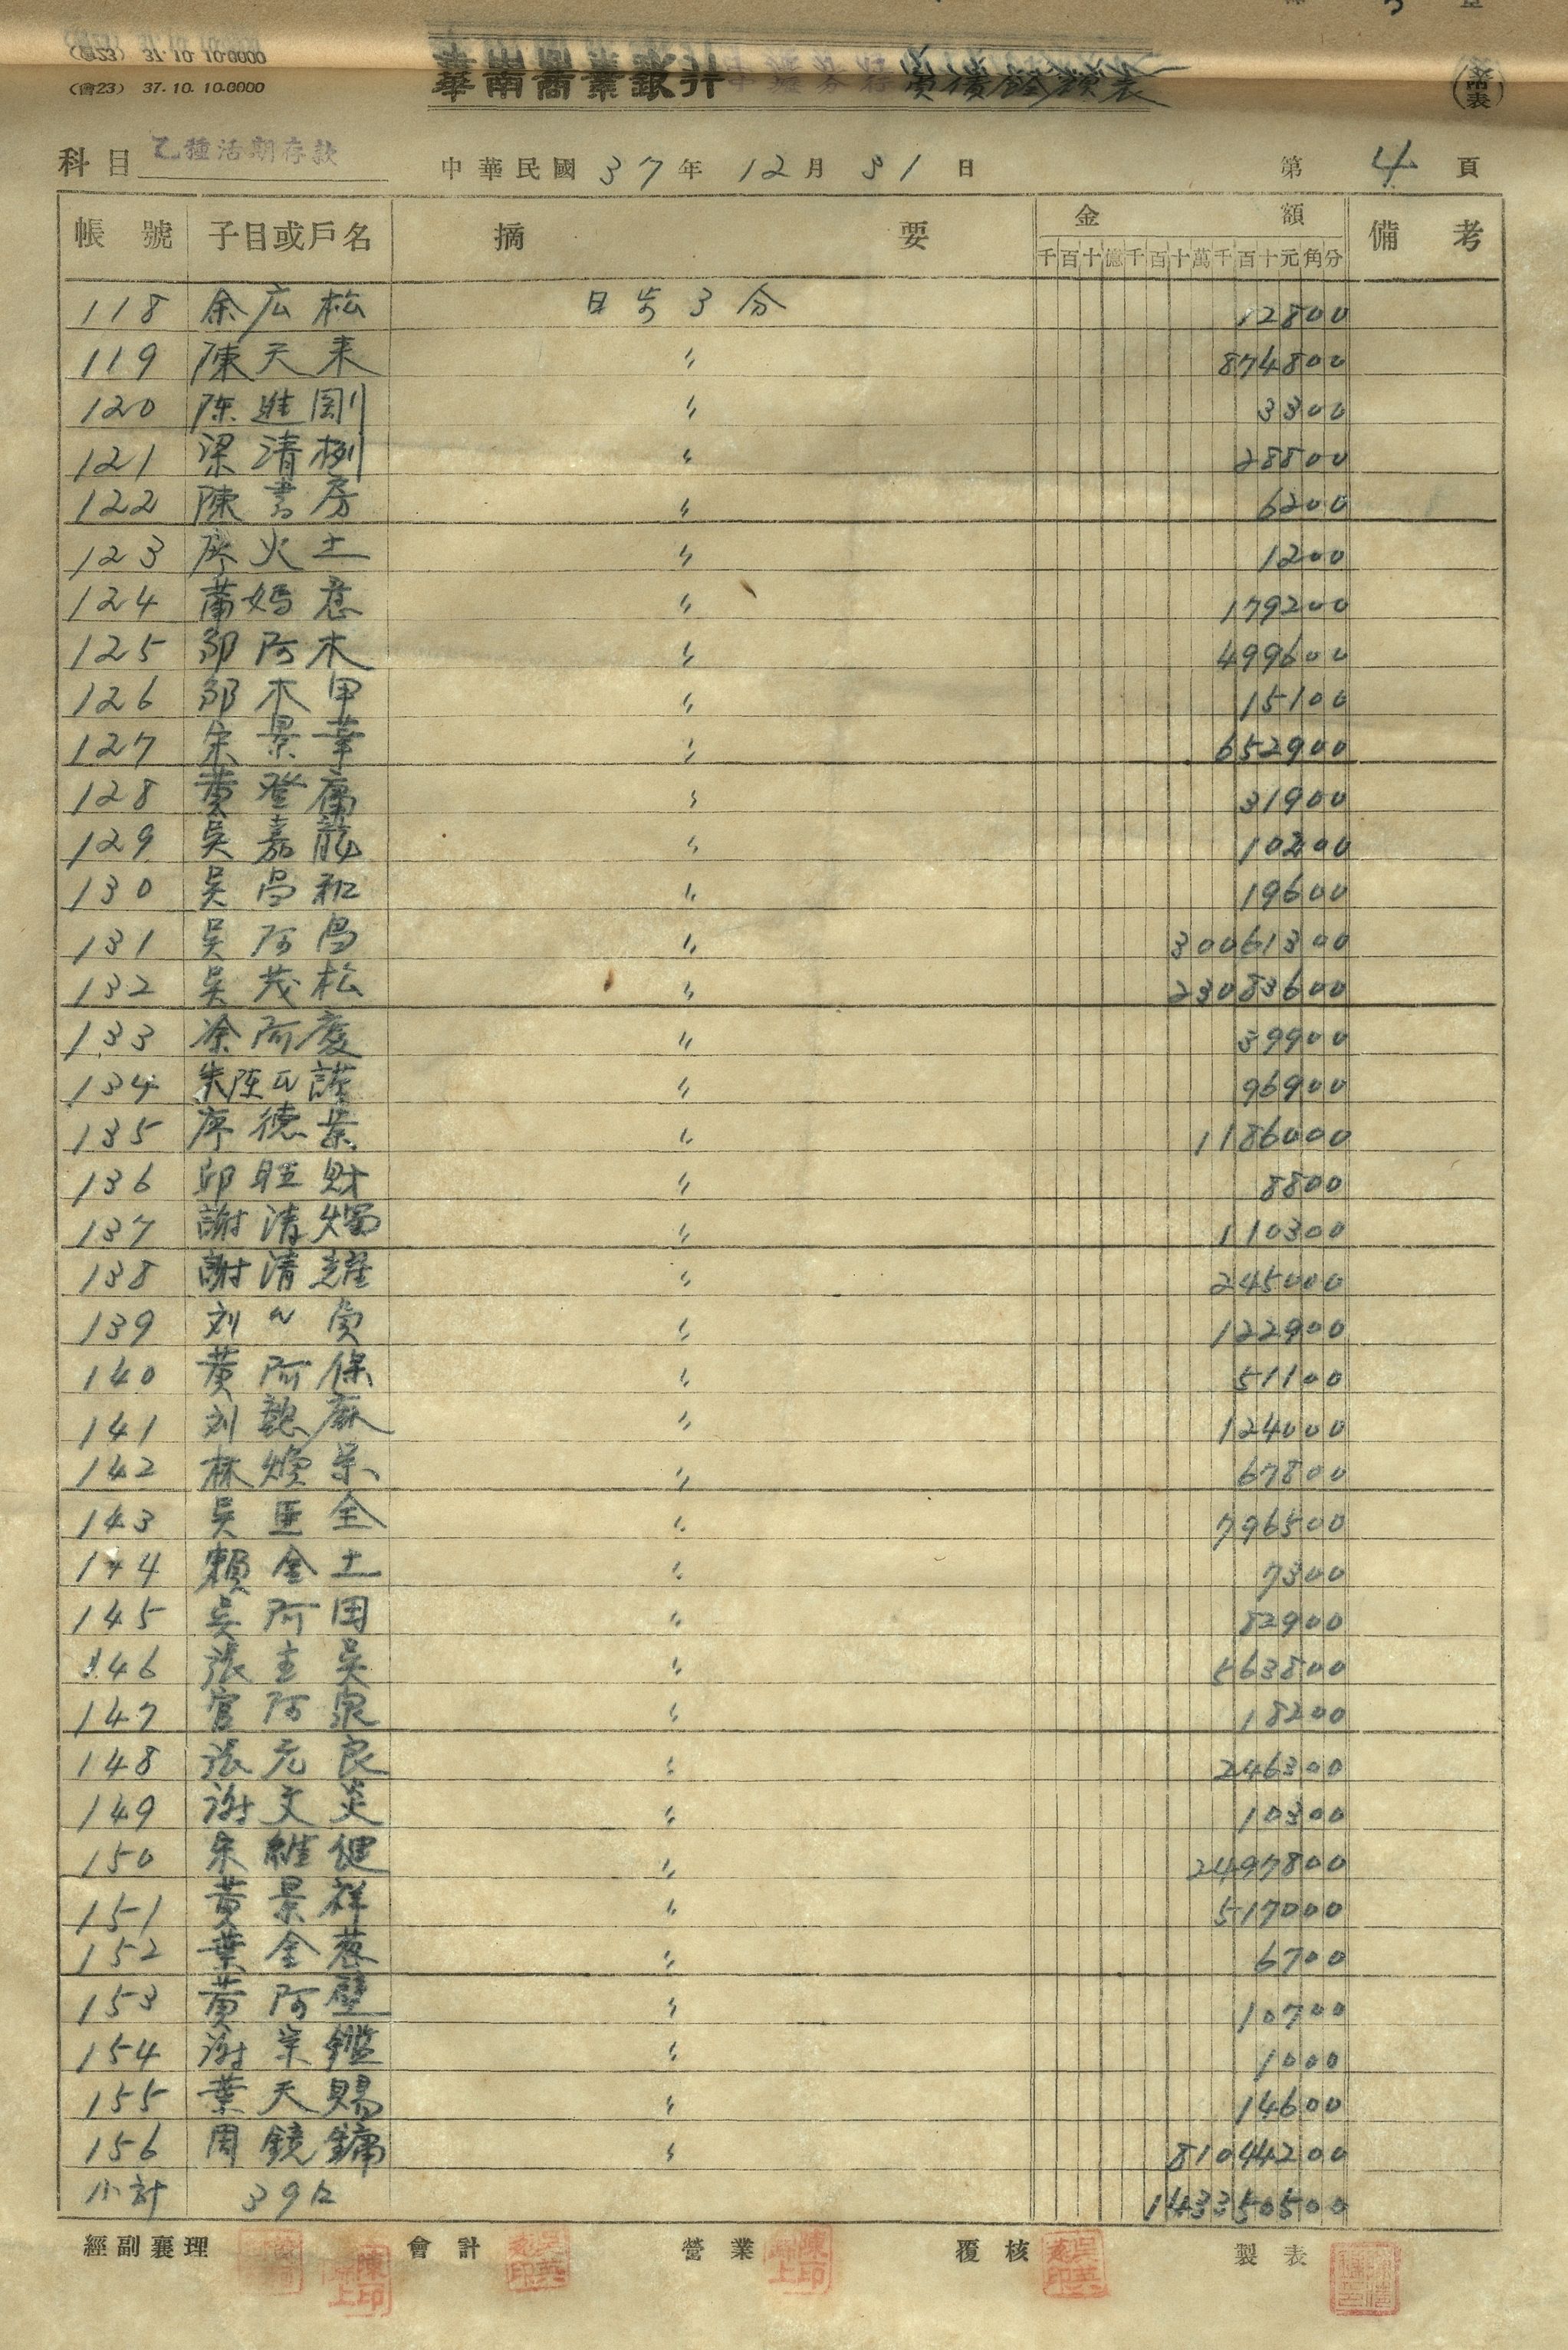 (會23) 37.10.10.0000
華南商業銀行
科目 乙種活期存款 中華民國 37 年 12 月 31 日 第 4 頁
帳號 子目或戶名 摘要 金額 備考
千百十億千百十萬千百十元角分
118 余広松 日歩3分 12800
119 陳天来 〃 874800
120 陈進剛 〃 3300
121 梁清 〃 28800
122 陳書房 〃 6200
123 廖火土 〃 1200
124 蕭媽意 〃 179200
125 邱阿木 〃 499600
126 邱木甲 〃 15100
127 宋景華 〃 652900
128 黄登 〃 31900
129 吳嘉龍 〃 10200
130 吳昌和 〃 19600
131 吳阿昌 〃 30061300
132 吳茂松 〃 23083600
133 涂阿慶 〃 39900
134 朱陈氏 〃 96900
135 廖德 〃 1186000
136 邱旺財 〃 8800
137 謝清燭 〃 110300
138 謝清耀 〃 245000
139 刘 〃 122900
140 黄阿保 〃 51100
141 刘 麻 〃 124000
142 林煥 〃 67800
143 吳 全 〃 796500
144 賴金土 〃 7300
145 吳阿田 〃 82900
146 張主吳 〃 563800
147 官阿泉 〃 18200
148 張元良 〃 246300
149 謝文炎 〃 10300
150 朱維健 〃 2497800
151 黄景祥 〃 517000
152 葉金 〃 6700
153 黄阿壁 〃 10700
154 謝 鑑 〃 1000
155 葉天賜 〃 14600
156 周鏡鏞 〃 81044200
小計 39口 143350500
經副襄理 會計 營業 覆核 製表